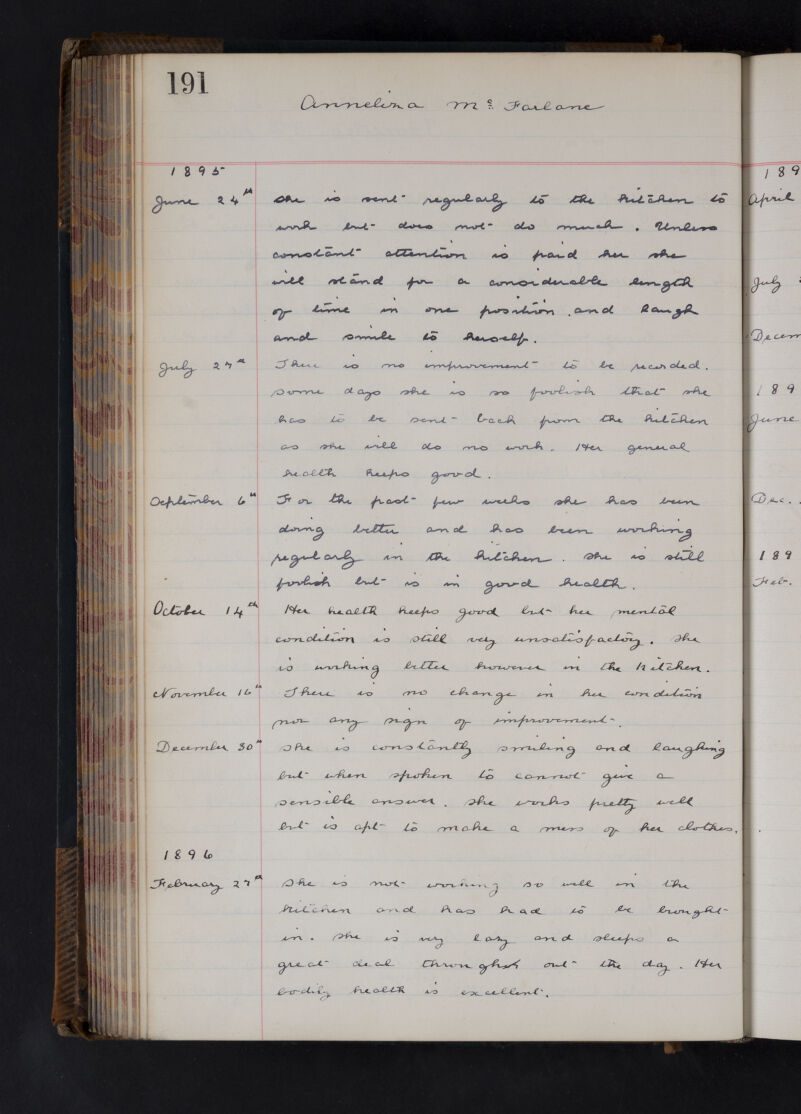 191
Annelina Mc Farlane
1895
June 24th She is sent regularly to the kitchen to
work but does not do much. Unless
constant attention is paid her she
will stand for a considerable length
of time in one position and laugh
and smile to herself.
July 27th There is no improvement to be recorded.
Some days she is so foolish that she
has to be sent back from the kitchen
as she will do no work. Her general
health keeps good.
September 6th For the past few weeks she has been
doing better and has been working
regularly in the kitchen. She is still
foolish but is in good health.
October 14th Her health keeps good but her mental
condition is still very unsatisfactory. She
is working better however in the kitchen.
November 16th There is no change in her condition
nor any sign of improvement.
December 30th She is constantly smiling and laughing
but when spoken to cannot give a
sensible answer. She works pretty well
but is apt to make a mess of her clothes.
1896
February 27th She is not working so well in the
kitchen and has had to be brought
in. She is very lazy and sleeps a
great deal through out the day. Her
bodily health is excellent.
189
April
July
Decem
189
June
Dec.
189
Feb.